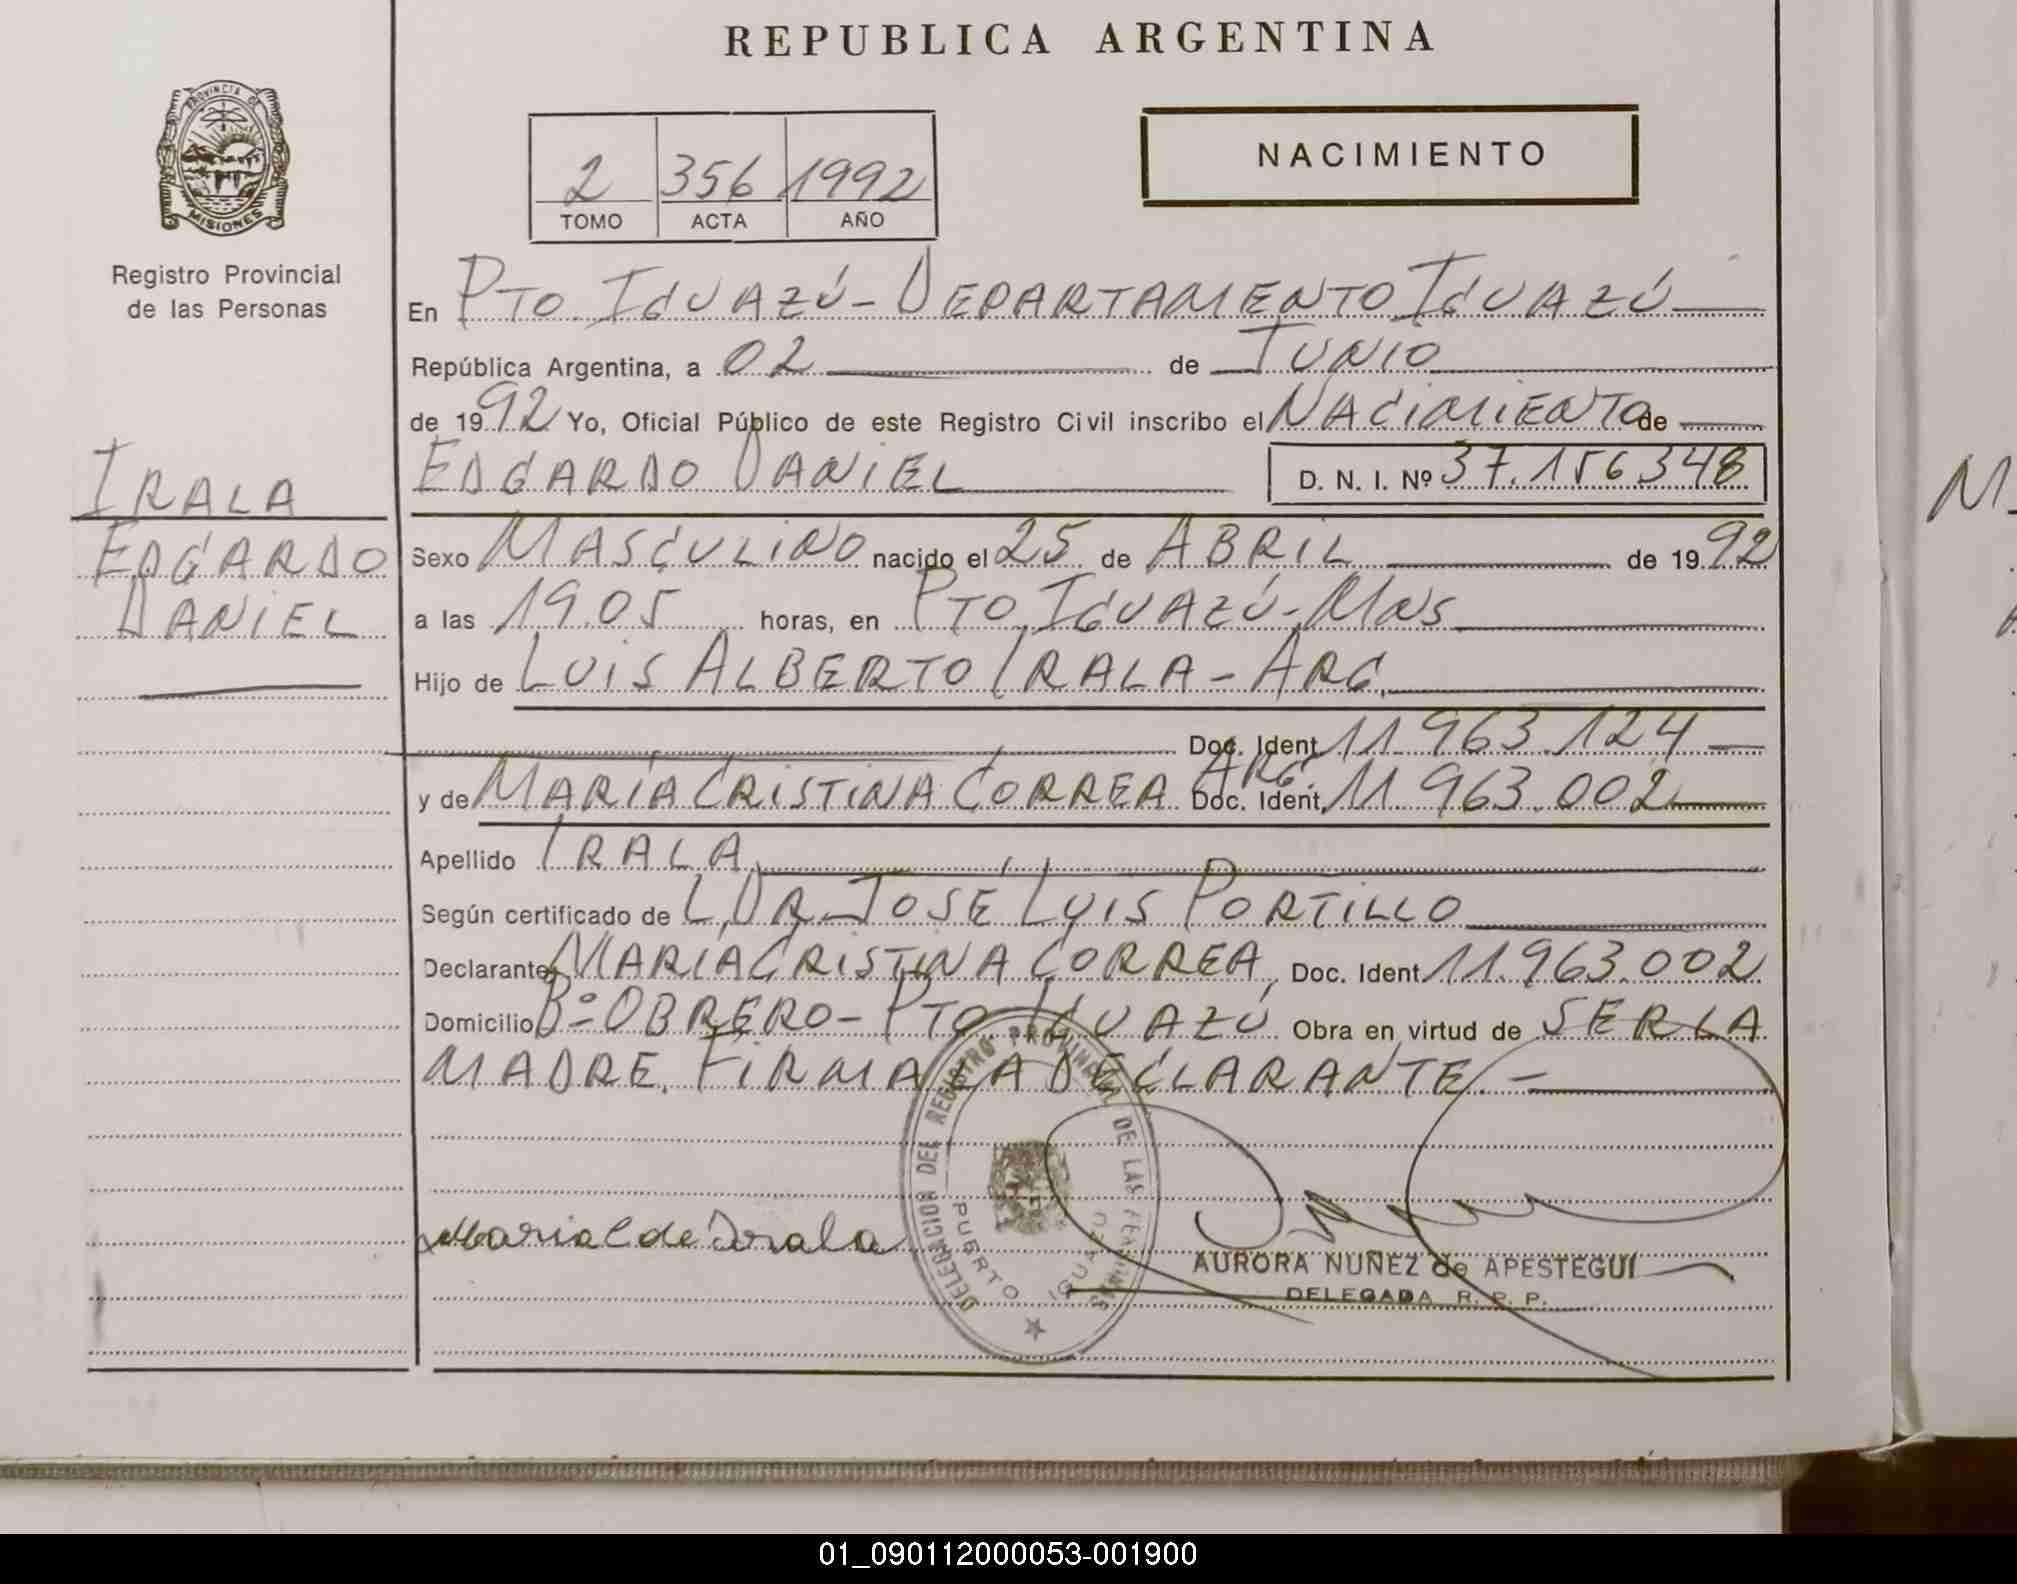 REPUBLICA ARGENTINA
PROVINCIA DE
MISIONES
Registro Provincial
de las Personas
2 356 1992
TOMO ACTA AÑO
NACIMIENTO
En PTO. IGUAZÚ - DEPARTAMENTO IGUAZÚ
República Argentina, a 02 de JUNIO
de 1992 Yo, Oficial Público de este Registro Civil inscribo el NACIMIENTO de
EDGARDO DANIEL D. N. I. Nº 37.156.348
IRALA
EDGARDO
DANIEL
Sexo MASCULINO nacido el 25 de ABRIL de 1992
a las 19.05 horas, en PTO. IGUAZÚ - MNS
Hijo de LUIS ALBERTO IRALA - ARG.
Doc. Ident. 11.963.124
y de MARÍA CRISTINA CORREA ARG. Doc. Ident. 11.963.002
Apellido IRALA
Según certificado de L, DR. JOSÉ LUIS PORTILLO
Declarante MARÍA CRISTINA CORREA, Doc. Ident. 11.963.002
Domicilio Bº OBRERO - PTO IGUAZÚ Obra en virtud de SER LA
MADRE. FIRMA LA DECLARANTE. -
DELEGACION DEL REGISTRO PROVINCIAL DE LAS PERSONAS
PUERTO IGUAZU
Maria C de Irala
AURORA NUÑEZ de APESTEGUI
DELEGADA R. P. P.
M
01_090112000053-001900